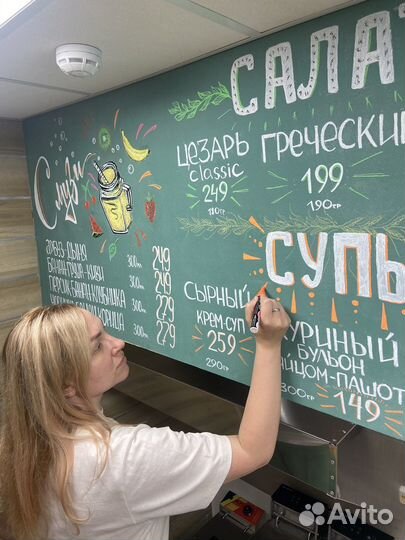 САЛАТ
Смузи
ЦЕЗАРЬ
classic
249
180гр
Греческий
199
190гр
арбуз-дыня
300мл 249
банан-груша-киви
300мл 249
персик банан клубника
300мл 279
300мл 279
СУПЫ
СЫРНЫЙ
КРЕМ-СУП
259
290гр
КУРИНЫЙ
БУЛЬОН
ЯЙЦОМ-ПАШОТ
300гр
149
Avito